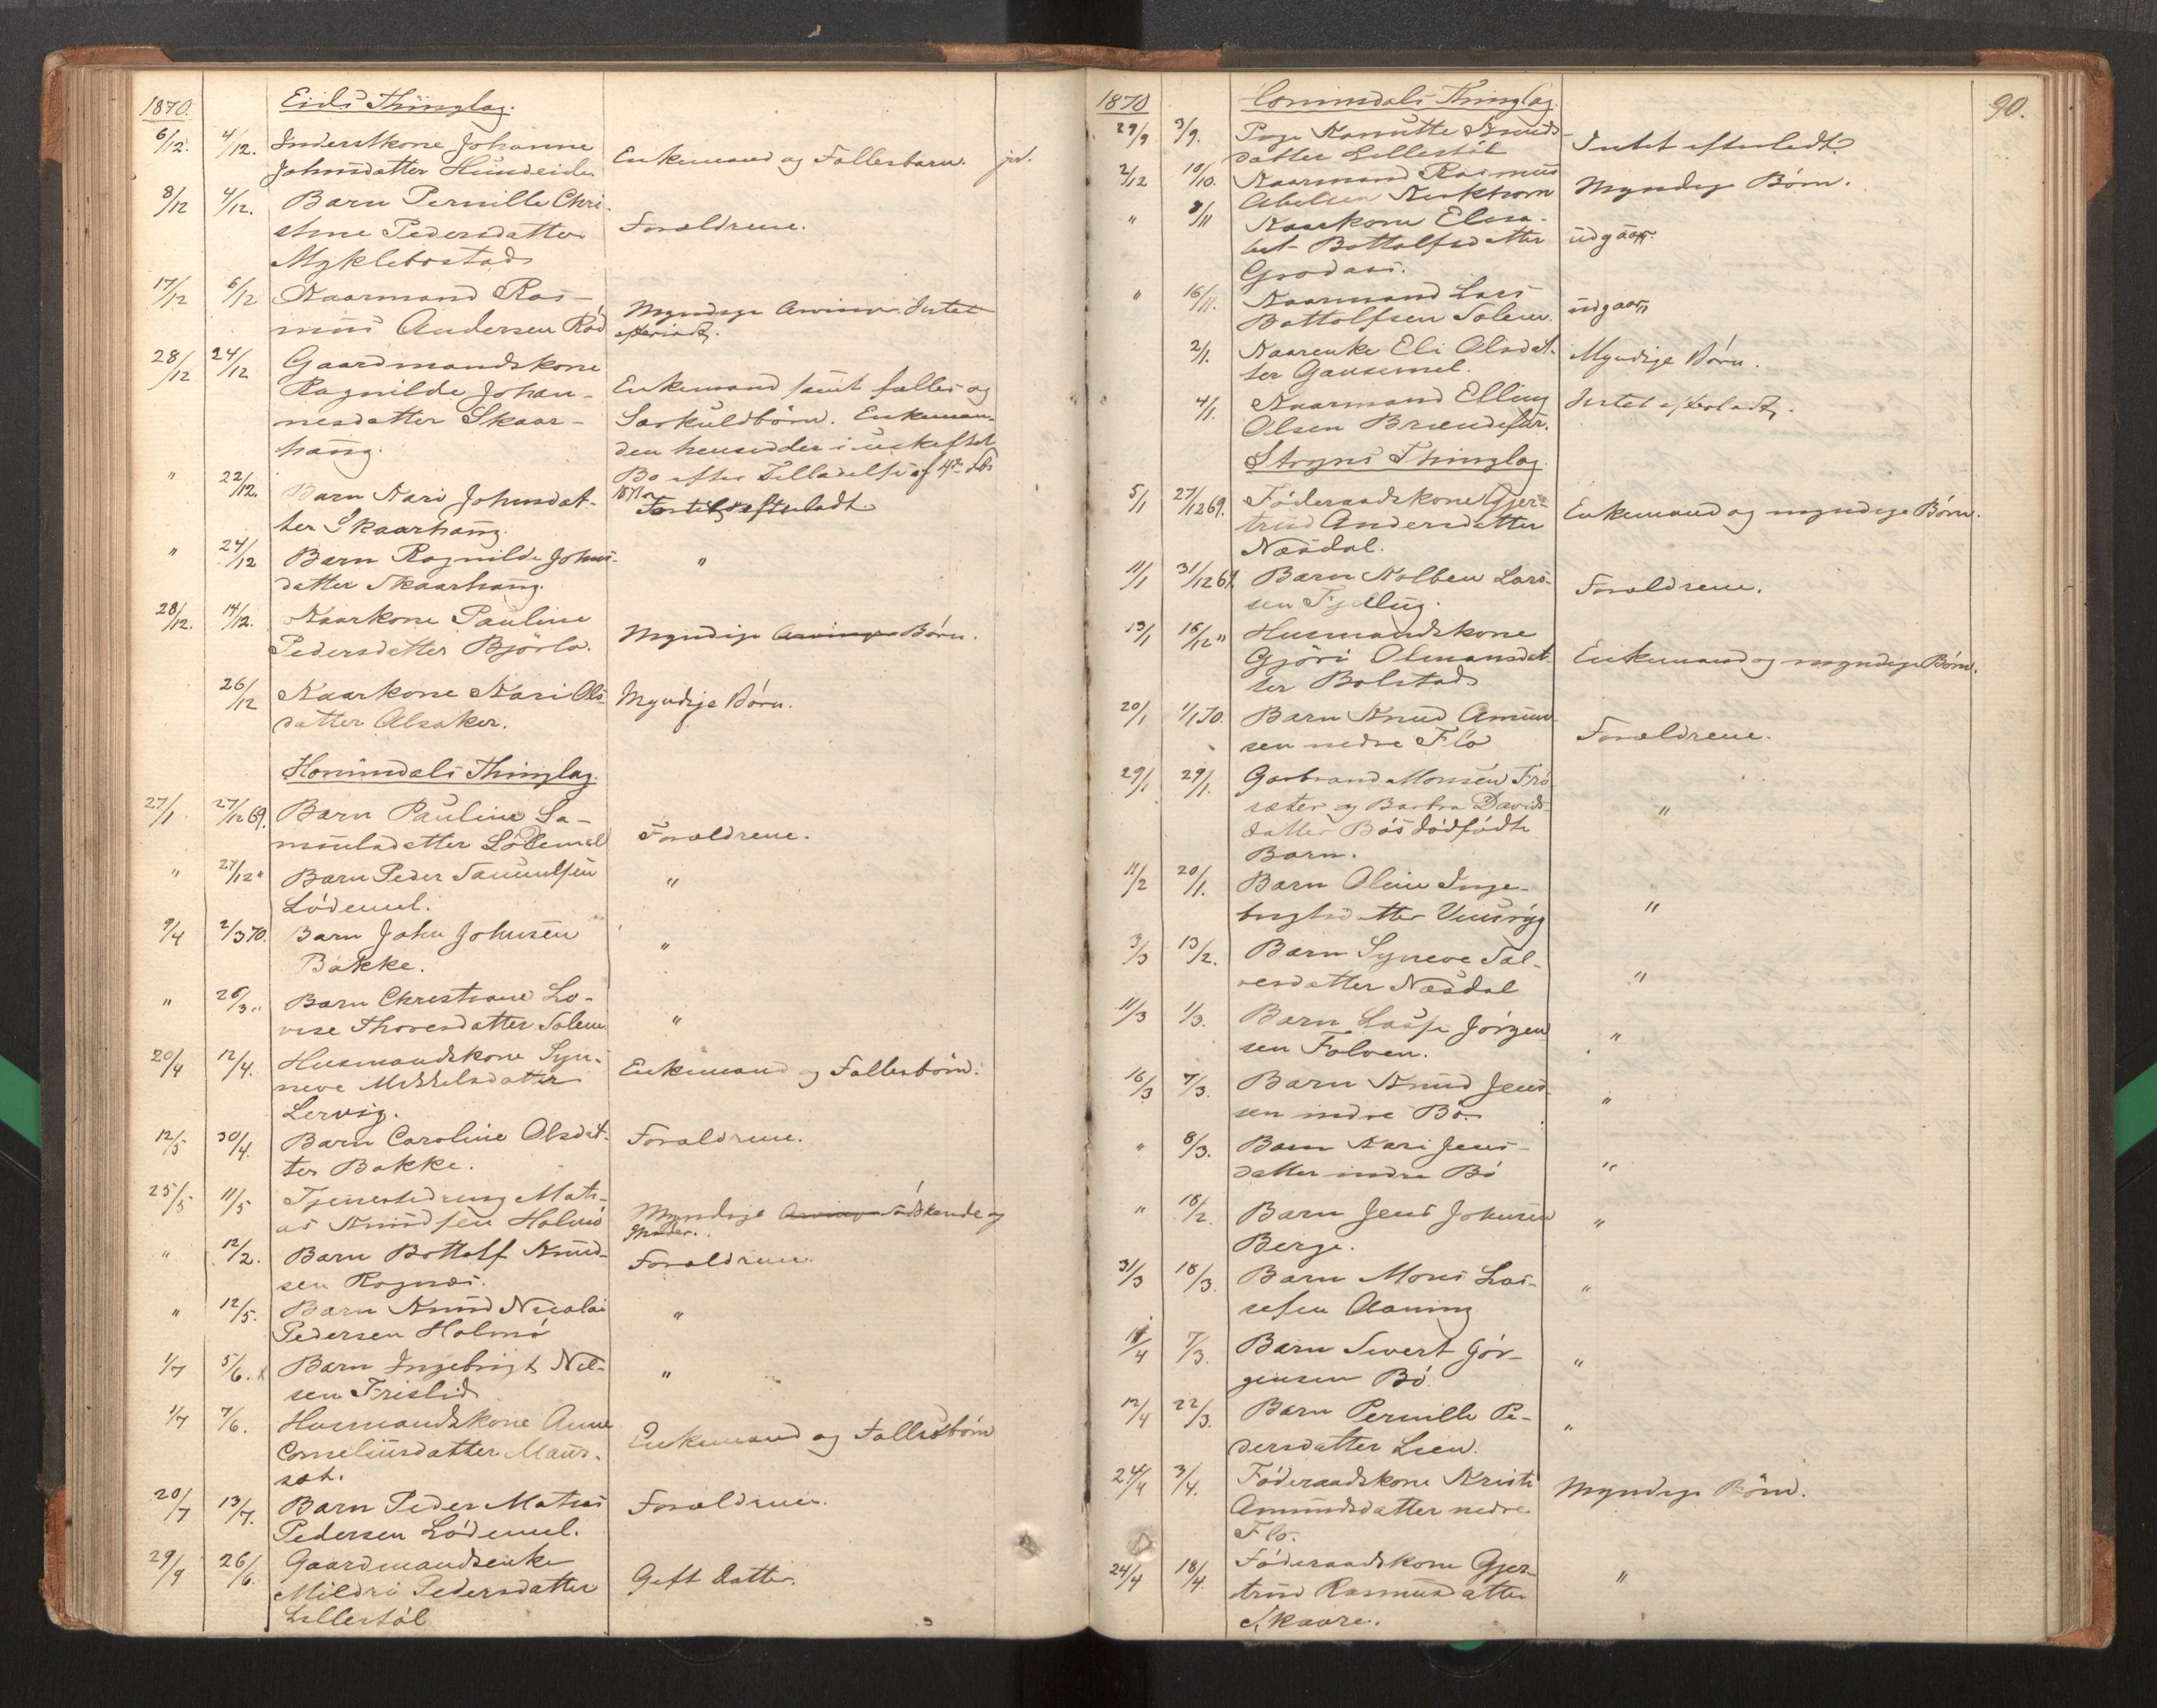 1870. Eids Thinglag.
6/12. 4/12. Inderstkone Johanne
Johnsdatter Hundeide Enkemand og Fællesbarn. jvl.
8/12 4/12. Barn Pernille Chri-
stine Pedersdatter Forældrene.
Myklebostad
17/12 6/12 Kaarmand Ras-
mus Andersen Rød Myndige Arvinger. Intet
efterladt.
28/12 24/12 Gaardmandskone
Ragnilde Johan- Enkemand samt fælles og
nesdatter Skaar- Særkuldbørn. Enkeman-
haug. den hensidder i uskiftet
Bo efter Tilladelse af
1871
" 22/12. Barn Kari Johnsdat-
ter Skaarhaug. efterladt
" 24/12 Barn Ragnilde Johns-
datter Skaarhaug. "
28/12. 14/12. Kaarkone Pauline
Pedersdatter Bjørlo. Myndige Arvinger Børn.
26/12 Kaarkone Kari Ols-
datter Alsaker. Myndige Børn.
Hornindals Thinglag.
27/1 27/12 69. Barn Pauline Sa-
muelsdatter Lødemel Forældrene.
" 27/12 " Barn Peder Samuelsen
Lødemel. "
9/4 2/3 70. Barn John Johnsen
Bakke. "
" 26/3 " Barn Christiane Lo-
vise Thoresdatter Solem. "
20/4 12/4. Husmandskone Syn-
neve Mikkelsdatter Enkemand og Fællesbørn.
Lervig.
12/5 30/4. Barn Caroline Olsdat-
ter Bakke. Forældrene.
25/5 11/5 Tjenestedreng Mati-
as Knudsen Holmø Myndige Arvinger Sødskende og
Moder.
" 12/2. Barn Bottolf Knud-
sen Rognæs. Forældrene.
" 12/5. Barn Knud Nicolai
Pedersen Holmø "
1/7 5/6. Barn Ingebrigt Nil-
sen Frislid "
1/7 7/6. Husmandskone Anne
Corneliusdatter Maur- Enkemand og Fællesbørn
sæt.
20/7 13/7. Barn Peder Matias
Pedersen Lødemel. Forældrene.
29/9 26/6. Gaardmandsenke
Mildri Pedersdatter Gift Datter.
Lillestøl
90.
1870 Hornindals Thinglag.
29/9 3/9. Pige Kanutte Knuds-
datter Lillestøl Intet efterladt.
2/12 10/10. Kaarmand Rasmus
Abelsen Kirkhorn Myndige Børn.
" 9/11 Kaarkone Elisa-
bet Bottolfsdatter udgaar.
Grodaas.
" 16/11. Kaarmand Lars
Bottolfsen Solem. udgaar
2/1. Kaarenke Eli Olsdat-
ter Gausemel. Myndige Børn.
4/1. Kaarmand Elling
Olsen Brændefur. Intet efterladt.
Stryns Thinglag
5/1 27/12 69. Føderaadskone Gjer-
trud Andersdatter Enkemand og myndige Børn.
Næsdal.
11/1 31/12 69 Barn Kolben Lars-
sen Fjelling. Forældrene.
13/1 16/12 " Husmandskone
Gjøri Olmansdat- Enkemand og myndige Børn.
ter Bolstad
20/1 1/1 70. Barn Knud Amund-
sen nedre Flo Forældrene.
29/1 29/1. Garbrand Monsen Frø-
sæter og Barbra Davids-
datter Bøs dødfødte "
Barn.
11/2 20/1. Barn Oline Inge-
brigtsdatter Vinsryg "
3/3 13/2. Barn Synneve Sal-
vesdatter Næsdal "
11/3 1/3. Barn Lasse Jørgen-
sen Folven. "
16/3 7/3. Barn Knud Jens-
sen indre Bø. "
" 8/3. Barn Kari Jens-
datter indre Bø "
" 18/2. Barn Jens Johnsen
Berge. "
31/3 18/3. Barn Mons Las-
sesen Aaning "
11/4 7/3. Barn Sivert Jør-
gensen Bø. "
12/4 22/3. Barn Pernille Pe-
dersdatter Lien. "
24/4 3/4. Føderaadskone Kristi
Amundsdatter nedre Myndige Børn.
Flo.
24/4 18/4. Føderaadskone Gjer-
trud Rasmusdatter "
Skaare.